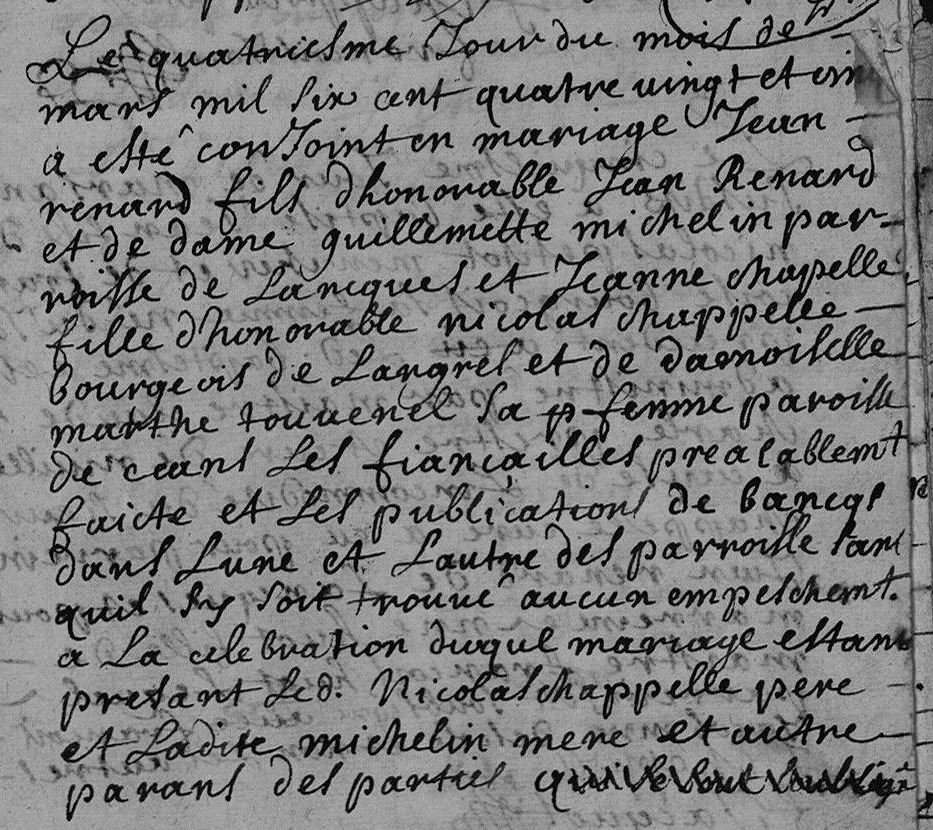 Le quatriesme Jour du mois de
mars mil six cent quatre vingt et un
a esté conJoint en mariage Jean
renard fils dhonorable Jean Renard
et de dame guillemette michelin par-
roisse de Lancques et Jeanne chapelle
fille dhonorable nicolas chappelle
bourgeois de Langres et de damoiselle
marthe touvenel sa femme paroisse
de ceans Les fiançailles prealablemt
faicte et Les publications de bancqs
dans Lune et Lautre des parroisse sans
quil sy soit trouvé aucun empeschemt.
a La celebration duquel mariage estans
presant Led. Nicolas chappelle pere
et Ladite michelin mere et autre
parans des parties